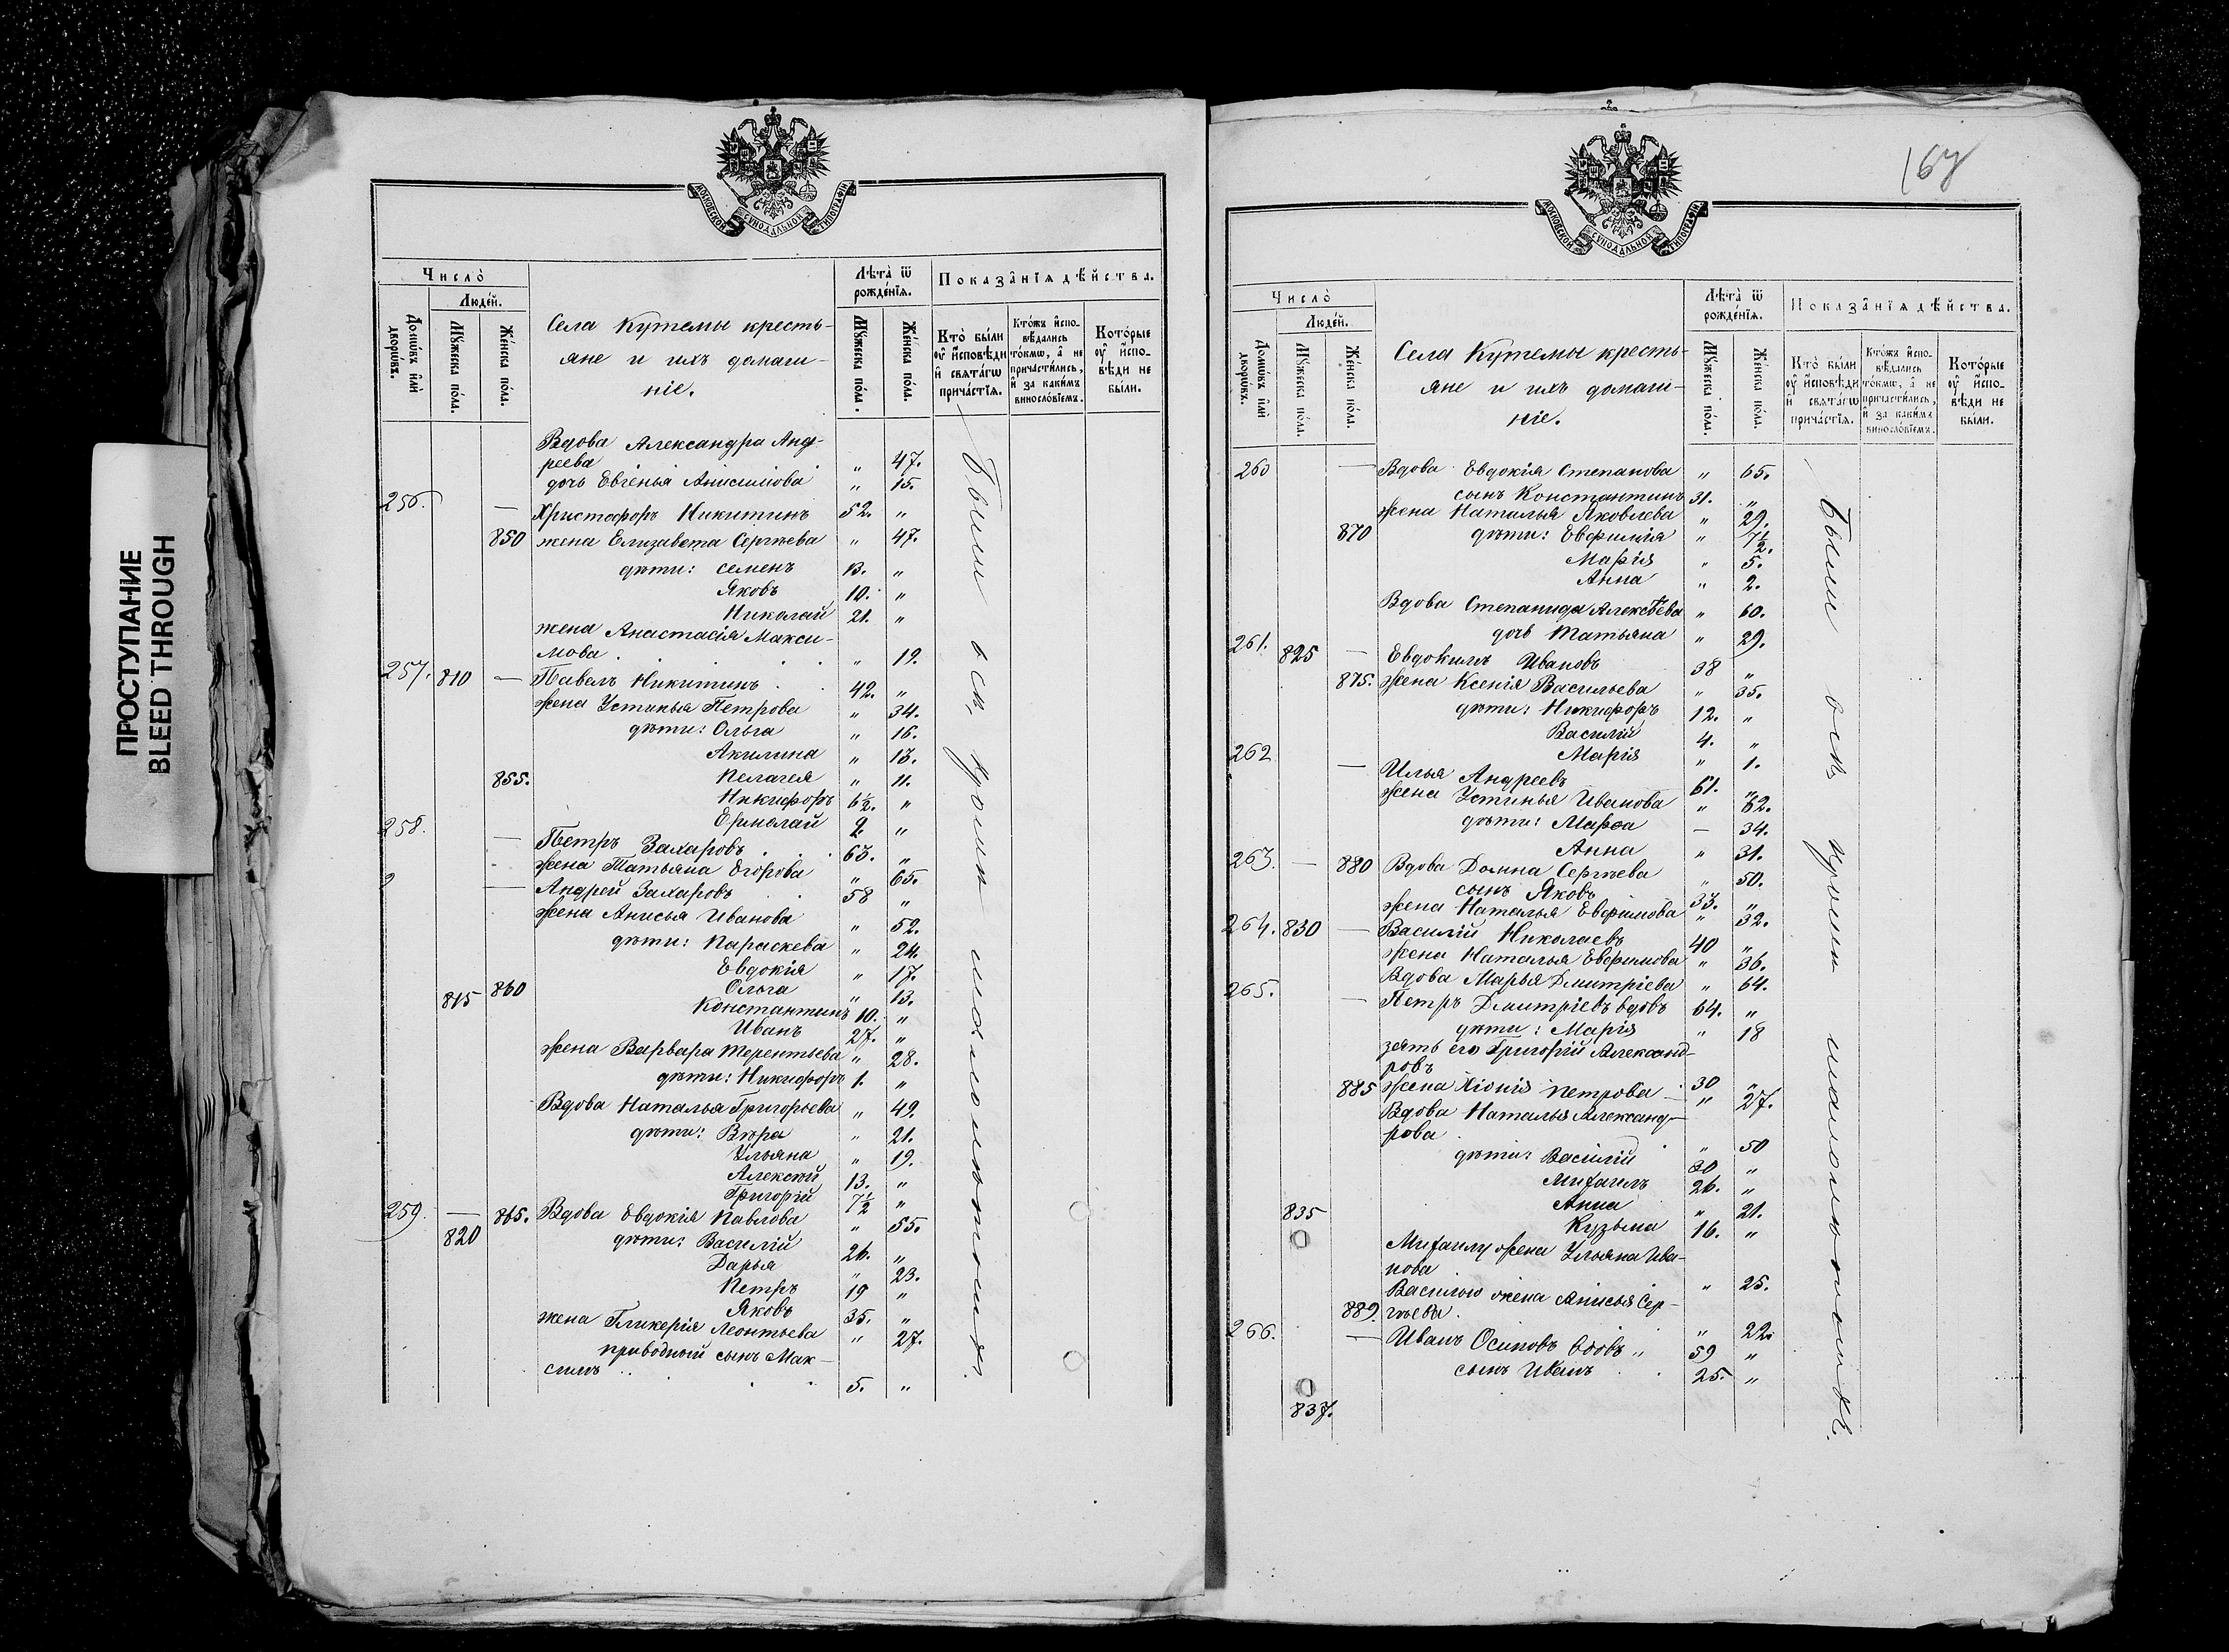 ПРОСТУПАНИЕ
BLEED THROUGH
МОСКОВСКОЙ СѴНОДАЛЬНОЙ ТИПОГРАФІИ
Число̀
Людéй.
Домѡ́въ и҆лѝ дворѡ́въ.
Мꙋ́жеска по́ла.
Же́нска по́ла.
Села Кутемы кресть-
яне и ихъ домаш-
ніе.
Лѣта̀ ѿ рожде́нїѧ.
Мꙋ́жеска по́ла.
Же́нска по́ла.
Показа̑нїѧ дѣ́йства.
Кто̀ бы́ли ᲂу҆ и҆сповѣ́ди и҆ свѧта́гѡ прича́стїѧ.
Кто́жъ и҆спо-вѣ́дались то́кмѡ, а҆ не причасти́лись, и҆ за каки́мъ винослѡ́вїемъ.
Кото́рые ᲂу҆ и҆спо-вѣ́ди не бы́ли.
Вдова Александра Анд-
реева " 47.
дочь Евгенья Анисимова " 15.
256. — Христофоръ Никитинъ 52. "
850 жена Елизавета Сергѣева " 47.
дѣти: Семенъ 13. "
Яковъ 10. "
Николай 21. "
жена Анастасія Макси-
мова " 19.
257. 810 — Павелъ Никитинъ 42. "
жена Устинья Петрова " 34.
дѣти: Ольга " 16.
Акилина " 13.
855. Пелагея " 11.
Никифоръ 6½. "
Ермолай 2. "
258. — Петръ Захаровъ 63. "
жена Татьяна Егорова " 65.
— Андрей Захаровъ 58 "
жена Анисья Иванова " 52.
дѣти: Параскева " 24.
Евдокія " 17.
860 Ольга " 13.
815 Константинъ 10. "
Иванъ 27. "
жена Варвара Терентьева " 28.
дѣти: Никифоръ 1. "
Вдова Наталья Григорьева " 49.
дѣти: Вѣра " 21.
Ульяна " 19.
Алексѣй 13. "
Григорій 7½ "
259. — 865. Вдова Евдокія Павлова " 55.
820 дѣти: Василій 26. "
Дарья " 23.
Петръ 19 "
Яковъ 35. "
жена Гликерія Леонтьева " 27.
приводный сынъ Мак-
симъ 5. "
Были
167
МОСКОВСКОЙ СѴНОДАЛЬНОЙ ТИПОГРАФІИ
Число̀
Людéй.
Домѡ́въ и҆лѝ дворѡ́въ.
Мꙋ́жеска по́ла.
Же́нска по́ла.
Села Кутемы кресть-
яне и ихъ домаш-
ніе.
Лѣта̀ ѿ рожде́нїѧ.
Мꙋ́жеска по́ла.
Же́нска по́ла.
Показа̑нїѧ дѣ́йства.
Кто̀ бы́ли ᲂу҆ и҆сповѣ́ди и҆ свѧта́гѡ прича́стїѧ.
Кто́жъ и҆спо-вѣ́дались то́кмѡ, а҆ не причасти́лись, и҆ за каки́мъ винослѡ́вїемъ.
Кото́рые ᲂу҆ и҆спо-вѣ́ди не бы́ли.
260 — Вдова Евдокія Степанова " 65.
сынъ Константинъ 31. "
жена Наталья Яковлева " 29.
870 дѣти: Евфимія " 7½.
Марія " 5.
Анна " 2.
Вдова Степанида Алексѣева " 60.
дочь Татьяна " 29.
261. 825 — Евдокимъ Ивановъ 38 "
875. жена Ксенія Васильева " 35.
дѣти: Никифоръ 12. "
Василій 4. "
Марія " 1.
262 — Илья Андреевъ 61. "
жена Устинья Иванова " 62.
дѣти: Марѳа — 34.
Анна " 31.
263. — 880 Вдова Домна Сергѣева " 50.
сынъ Яковъ 33. "
жена Наталья Евфимова " 32.
264. 830 — Василій Николаевъ 40 "
жена Наталья Евфимова " 36.
Вдова Марья Дмитріева " 64.
265. — Петръ Дмитріевъ вдовъ 64. "
дѣти: Марія " 18
зять его Григорій Александ-
ровъ 30 "
885 жена Хіонія Петрова " 27.
Вдова Наталья Александ-
рова " 50
дѣти: Василій 30 "
Михаилъ 26. "
Анна " 21.
835 Кузьма 16. "
Михаилу жена Ульяна Ива-
нова " 25.
Василью жена Анисья Сер-
889. гѣева " 22.
266. — Иванъ Осиповъ вдовъ 59 "
сынъ Иванъ 25. "
837.
Были